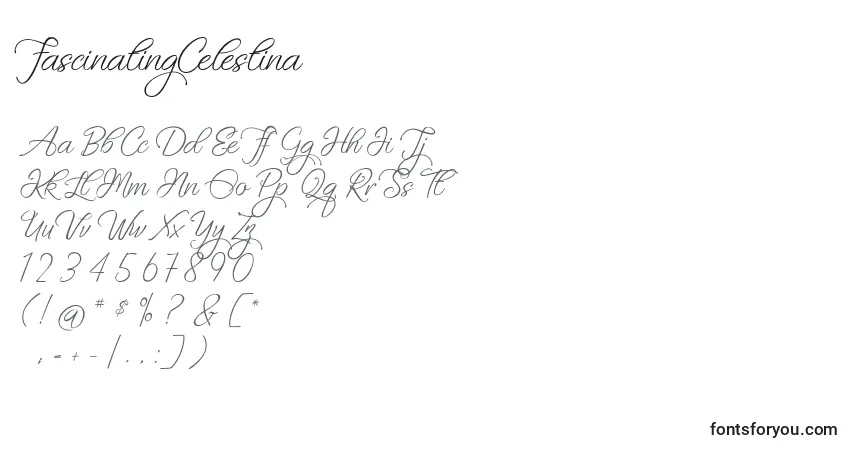 FascinatingCelestina
Aa Bb Cc Dd Ee Ff Gg Hh Ii Jj
Kk Ll Mm Nn Oo Pp Qq Rr Ss Tt
Uu Vv Ww Xx Yy Zz
1 2 3 4 5 6 7 8 9 0
( ! @ * # $ % ? & [ *
; = + - | . , : ] )
fontsforyou.com